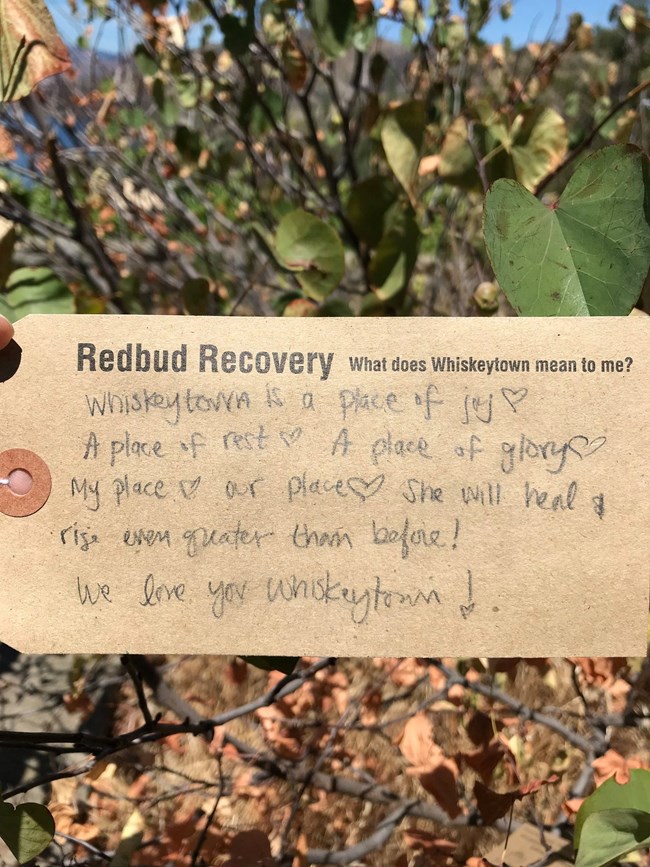 Redbud Recovery What does Whiskeytown mean to me?
Whiskeytown is a place of joy ♡
A place of rest ♡ A place of glory ♡
My place ♡ our place ♡ She will heal &
rise even greater than before!
We love you Whiskeytown!